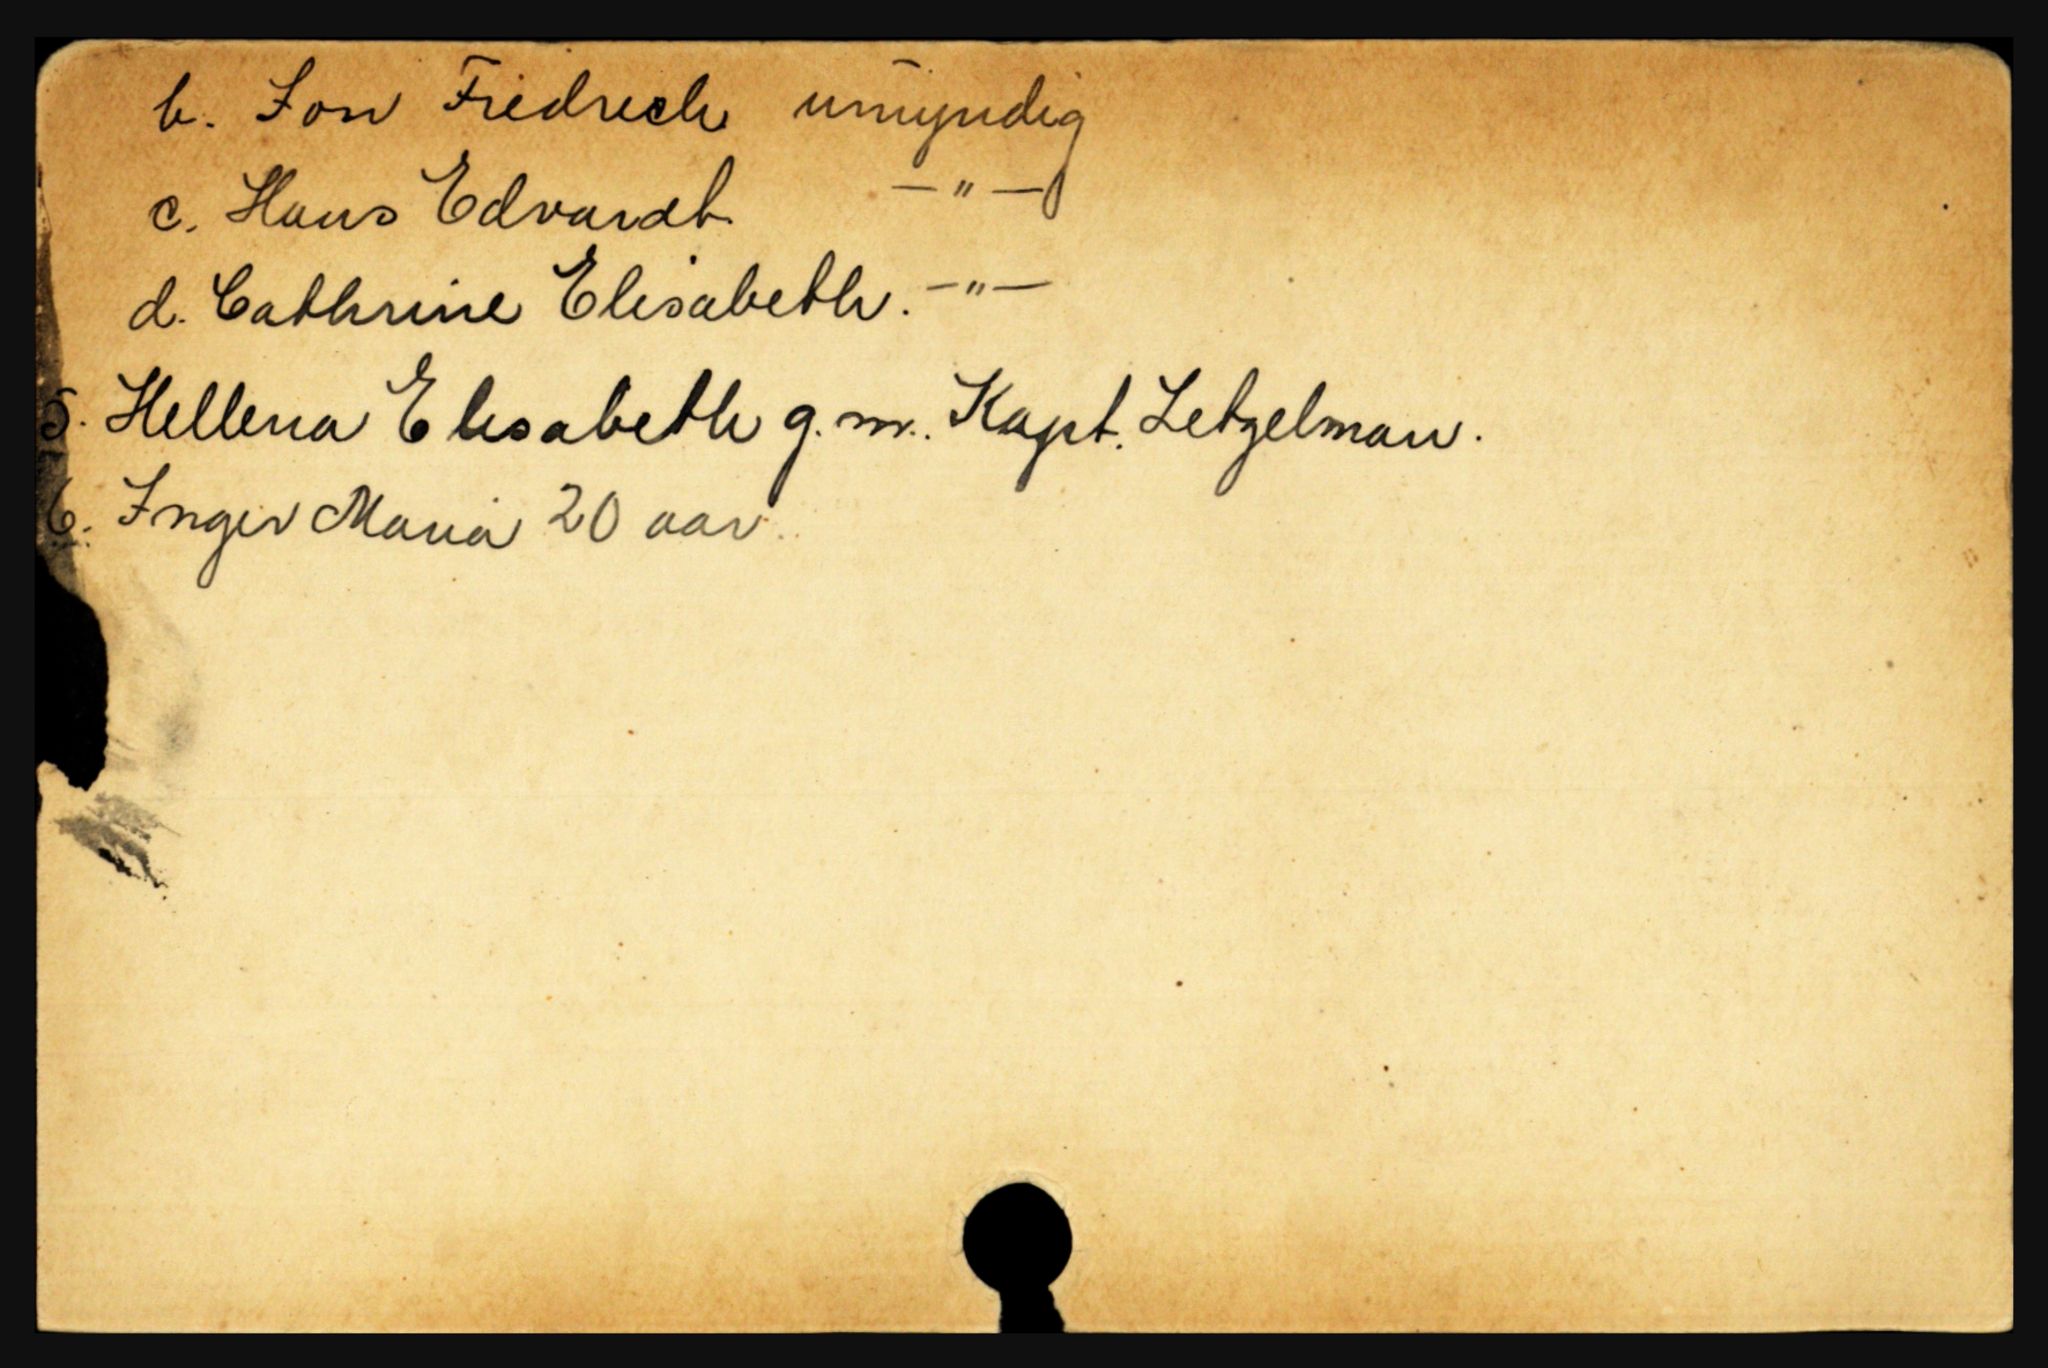 b. Jon Friedrich umyndig
c. Hans Edvardt —"—
d. Cathrine Elisabeth. —"—
5. Hellena Elisabeth g.m. Kapt. Letzelman.
6. Inger Maria 20 aar.